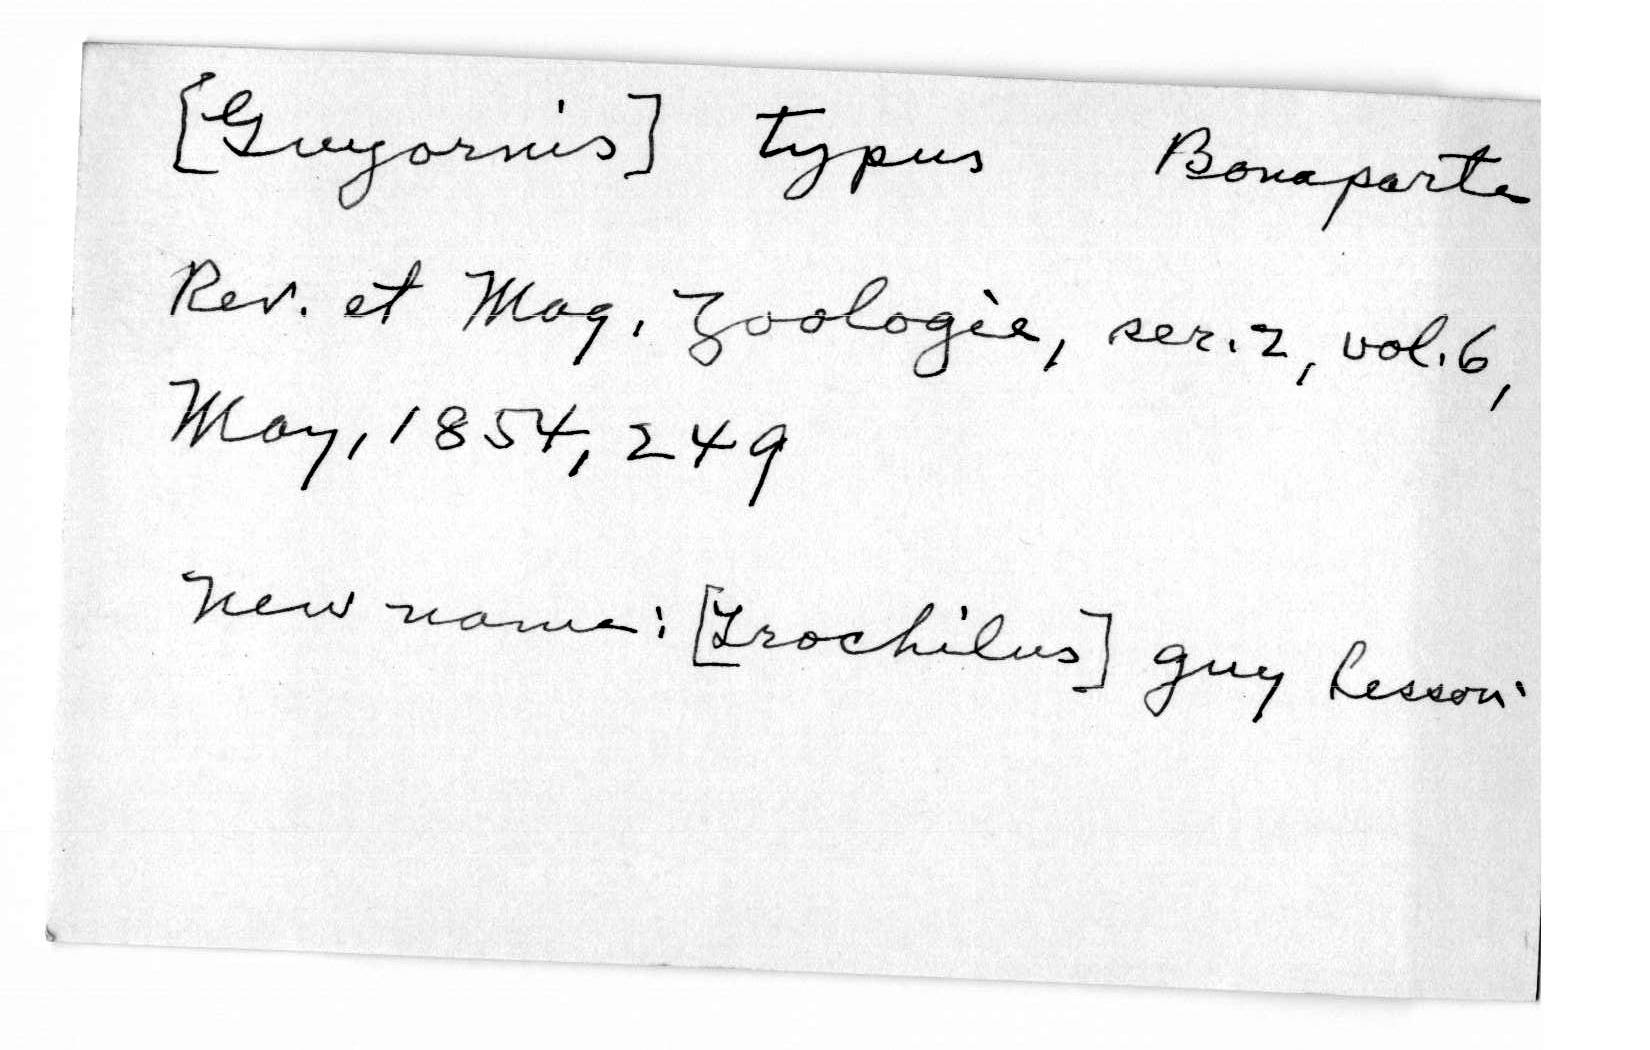 [Guyornis] typus Bonaparte
Rev. et Mag. Zoologie, ser. 2, vol. 6,
May, 1854, 249
New name: [Trochilus] guy Lesson